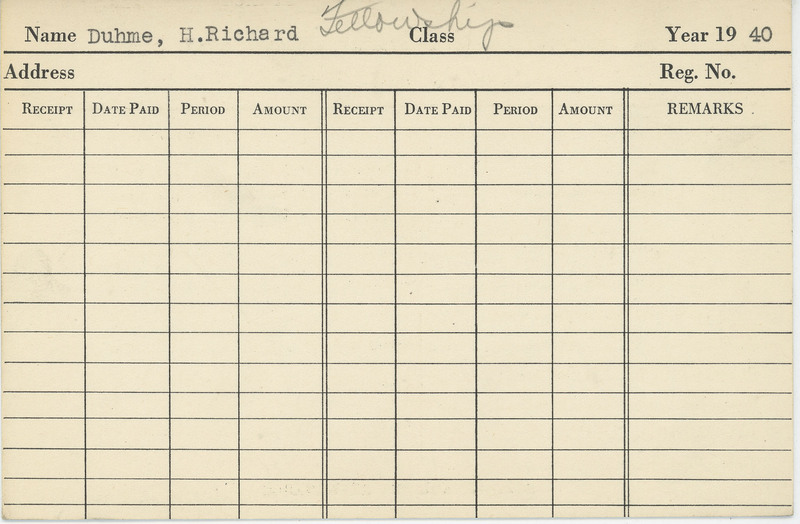 Name Duhme, H.Richard Fellowship Class Year 19 40
Address Reg. No.
RECEIPT DATE PAID PERIOD AMOUNT RECEIPT DATE PAID PERIOD AMOUNT REMARKS